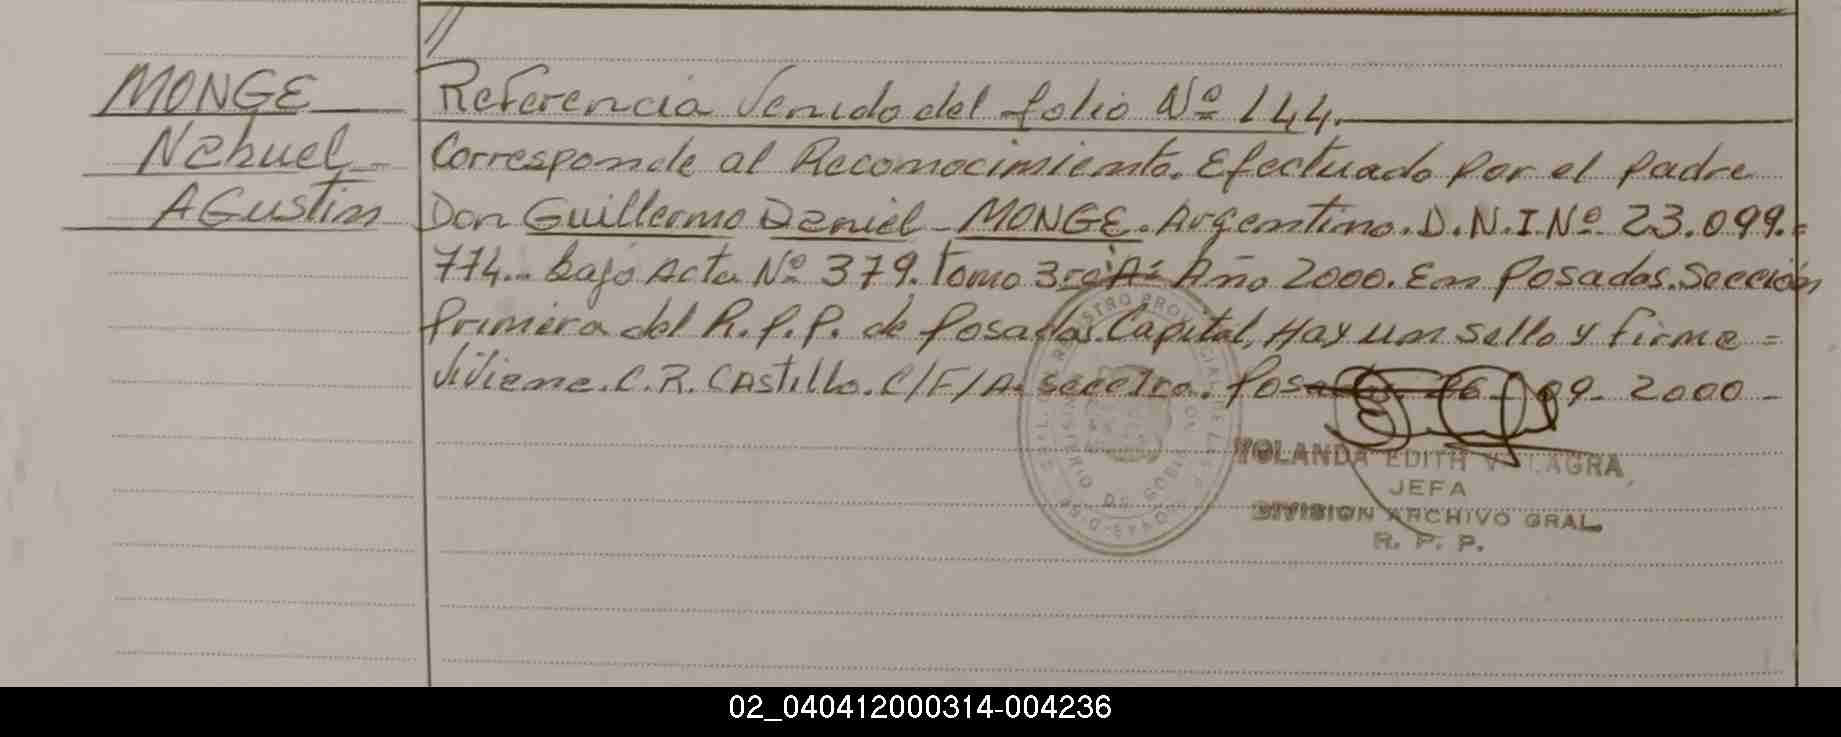 //
MONGE
Nahuel
AGustin
Referencia Venido del folio Nº 144.
Corresponde al Reconocimiento. Efectuado por el padre
Don Guillermo Daniel MONGE. Argentino. D.N.I.Nº 23.099.=
774.- bajo Acta Nº 379. Tomo 3ro A- Año 2000. En Posadas. Sección
Primera del R.P.P. de Posadas. Capital, Hay un sello y firma =
Viviana. C.R. CAstillo. C/F/A. Secetra. Posadas 26-09-2000-
REGISTRO PROVINCIAL DE LAS P
MINISTERIO DE GOBIERNO
YOLANDA EDITH VILLAGRA
JEFA
DIVISION ARCHIVO GRAL.
R. P. P.
02_040412000314-004236